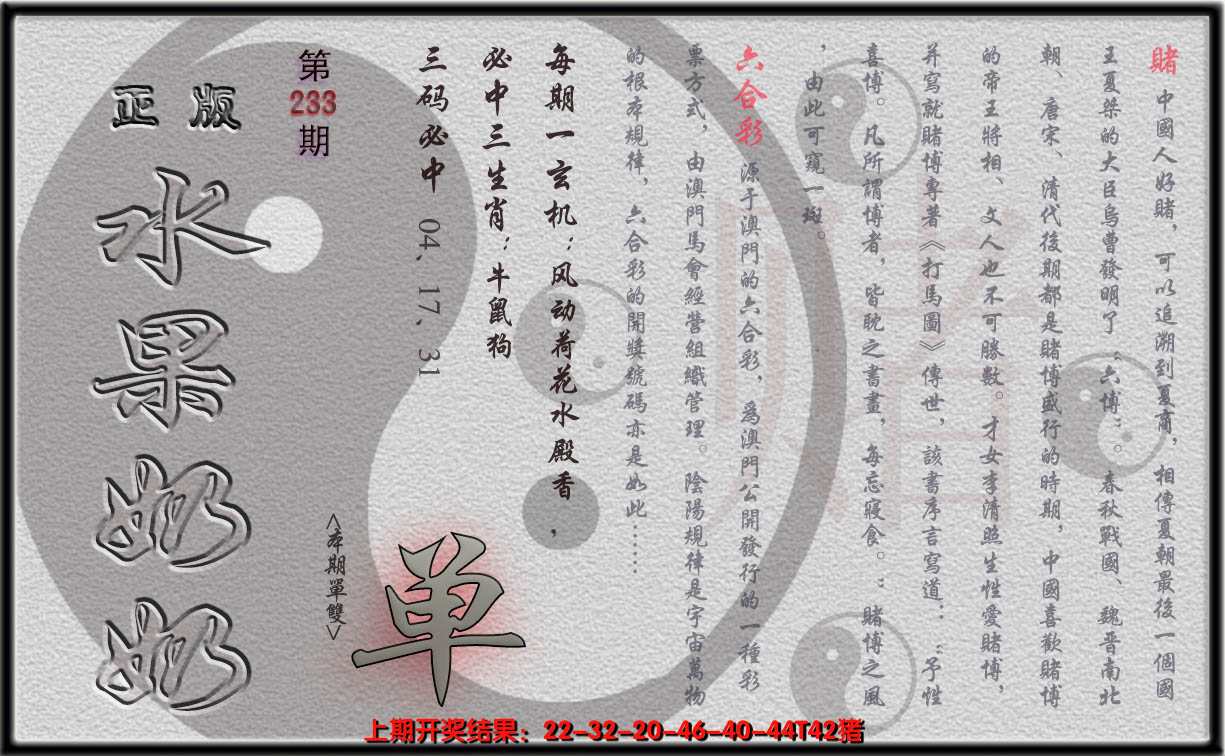 賭 中國人好賭，可以追溯到夏商，相傳夏朝最後一個國
王夏桀的大臣烏曹發明了“六博”。春秋戰國、魏晋南北
朝、唐宋、清代後期都是賭博盛行的時期，中國喜歡賭博
的帝王將相、文人也不可勝數。才女李清照生性愛賭博，
并寫就賭博專著《打馬圖》傳世，該書序言寫道：“予性
喜博。凡所謂博者，皆耽之書畫，每忘寢食。”賭博之風
，由此可窺一斑。
六合彩 源于澳門的六合彩，爲澳門公開發行的一種彩
票方式，由澳門馬會經營組織管理。陰陽規律是宇宙萬物
的根本規律，六合彩的開獎號碼亦是如此……
每期一玄机：风动荷花水殿香，
必中三生肖：牛鼠狗
三码必中 04、17、31
第233期
正版
水果奶奶
<本期單雙>
单
上期开奖结果：22-32-20-46-40-44T42猪